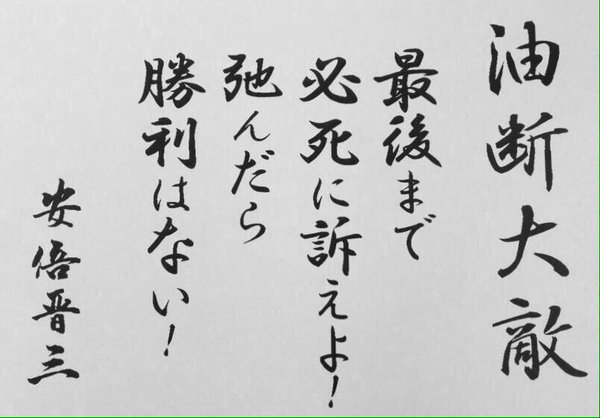 油断大敵
最後まで
必死に訴えよ!
弛んだら
勝利はない!
安倍晋三